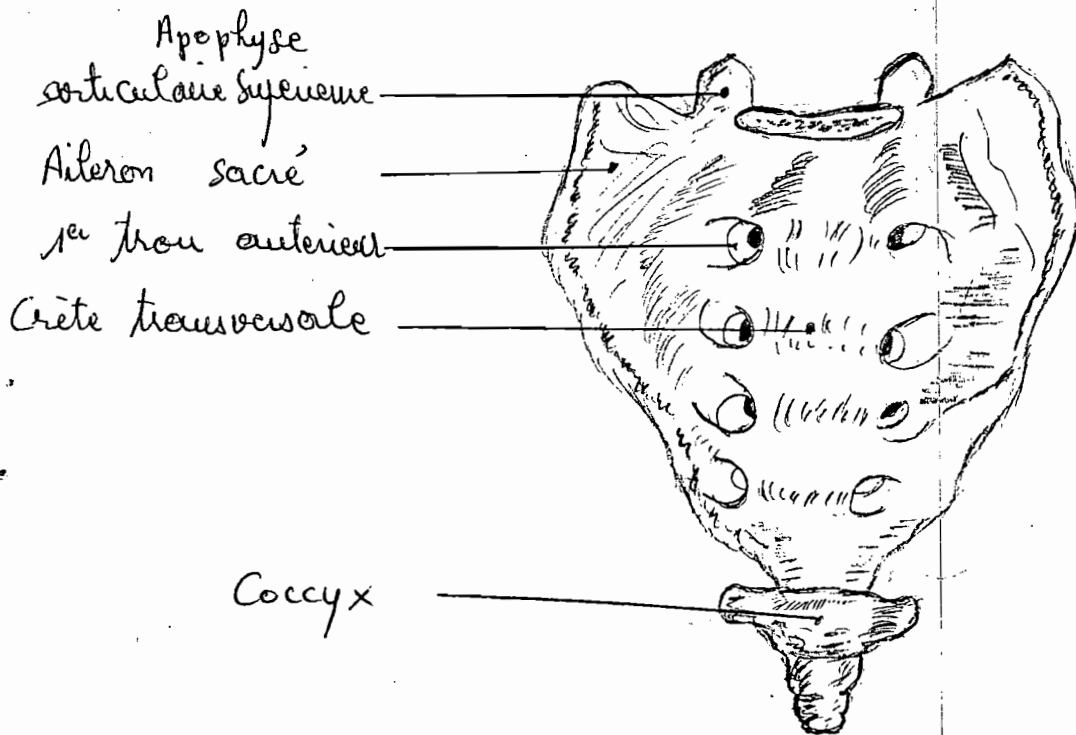 Apophyse
articulaire supérieure
Aileron sacré
1er trou antérieur
Crète transversale
Coccyx